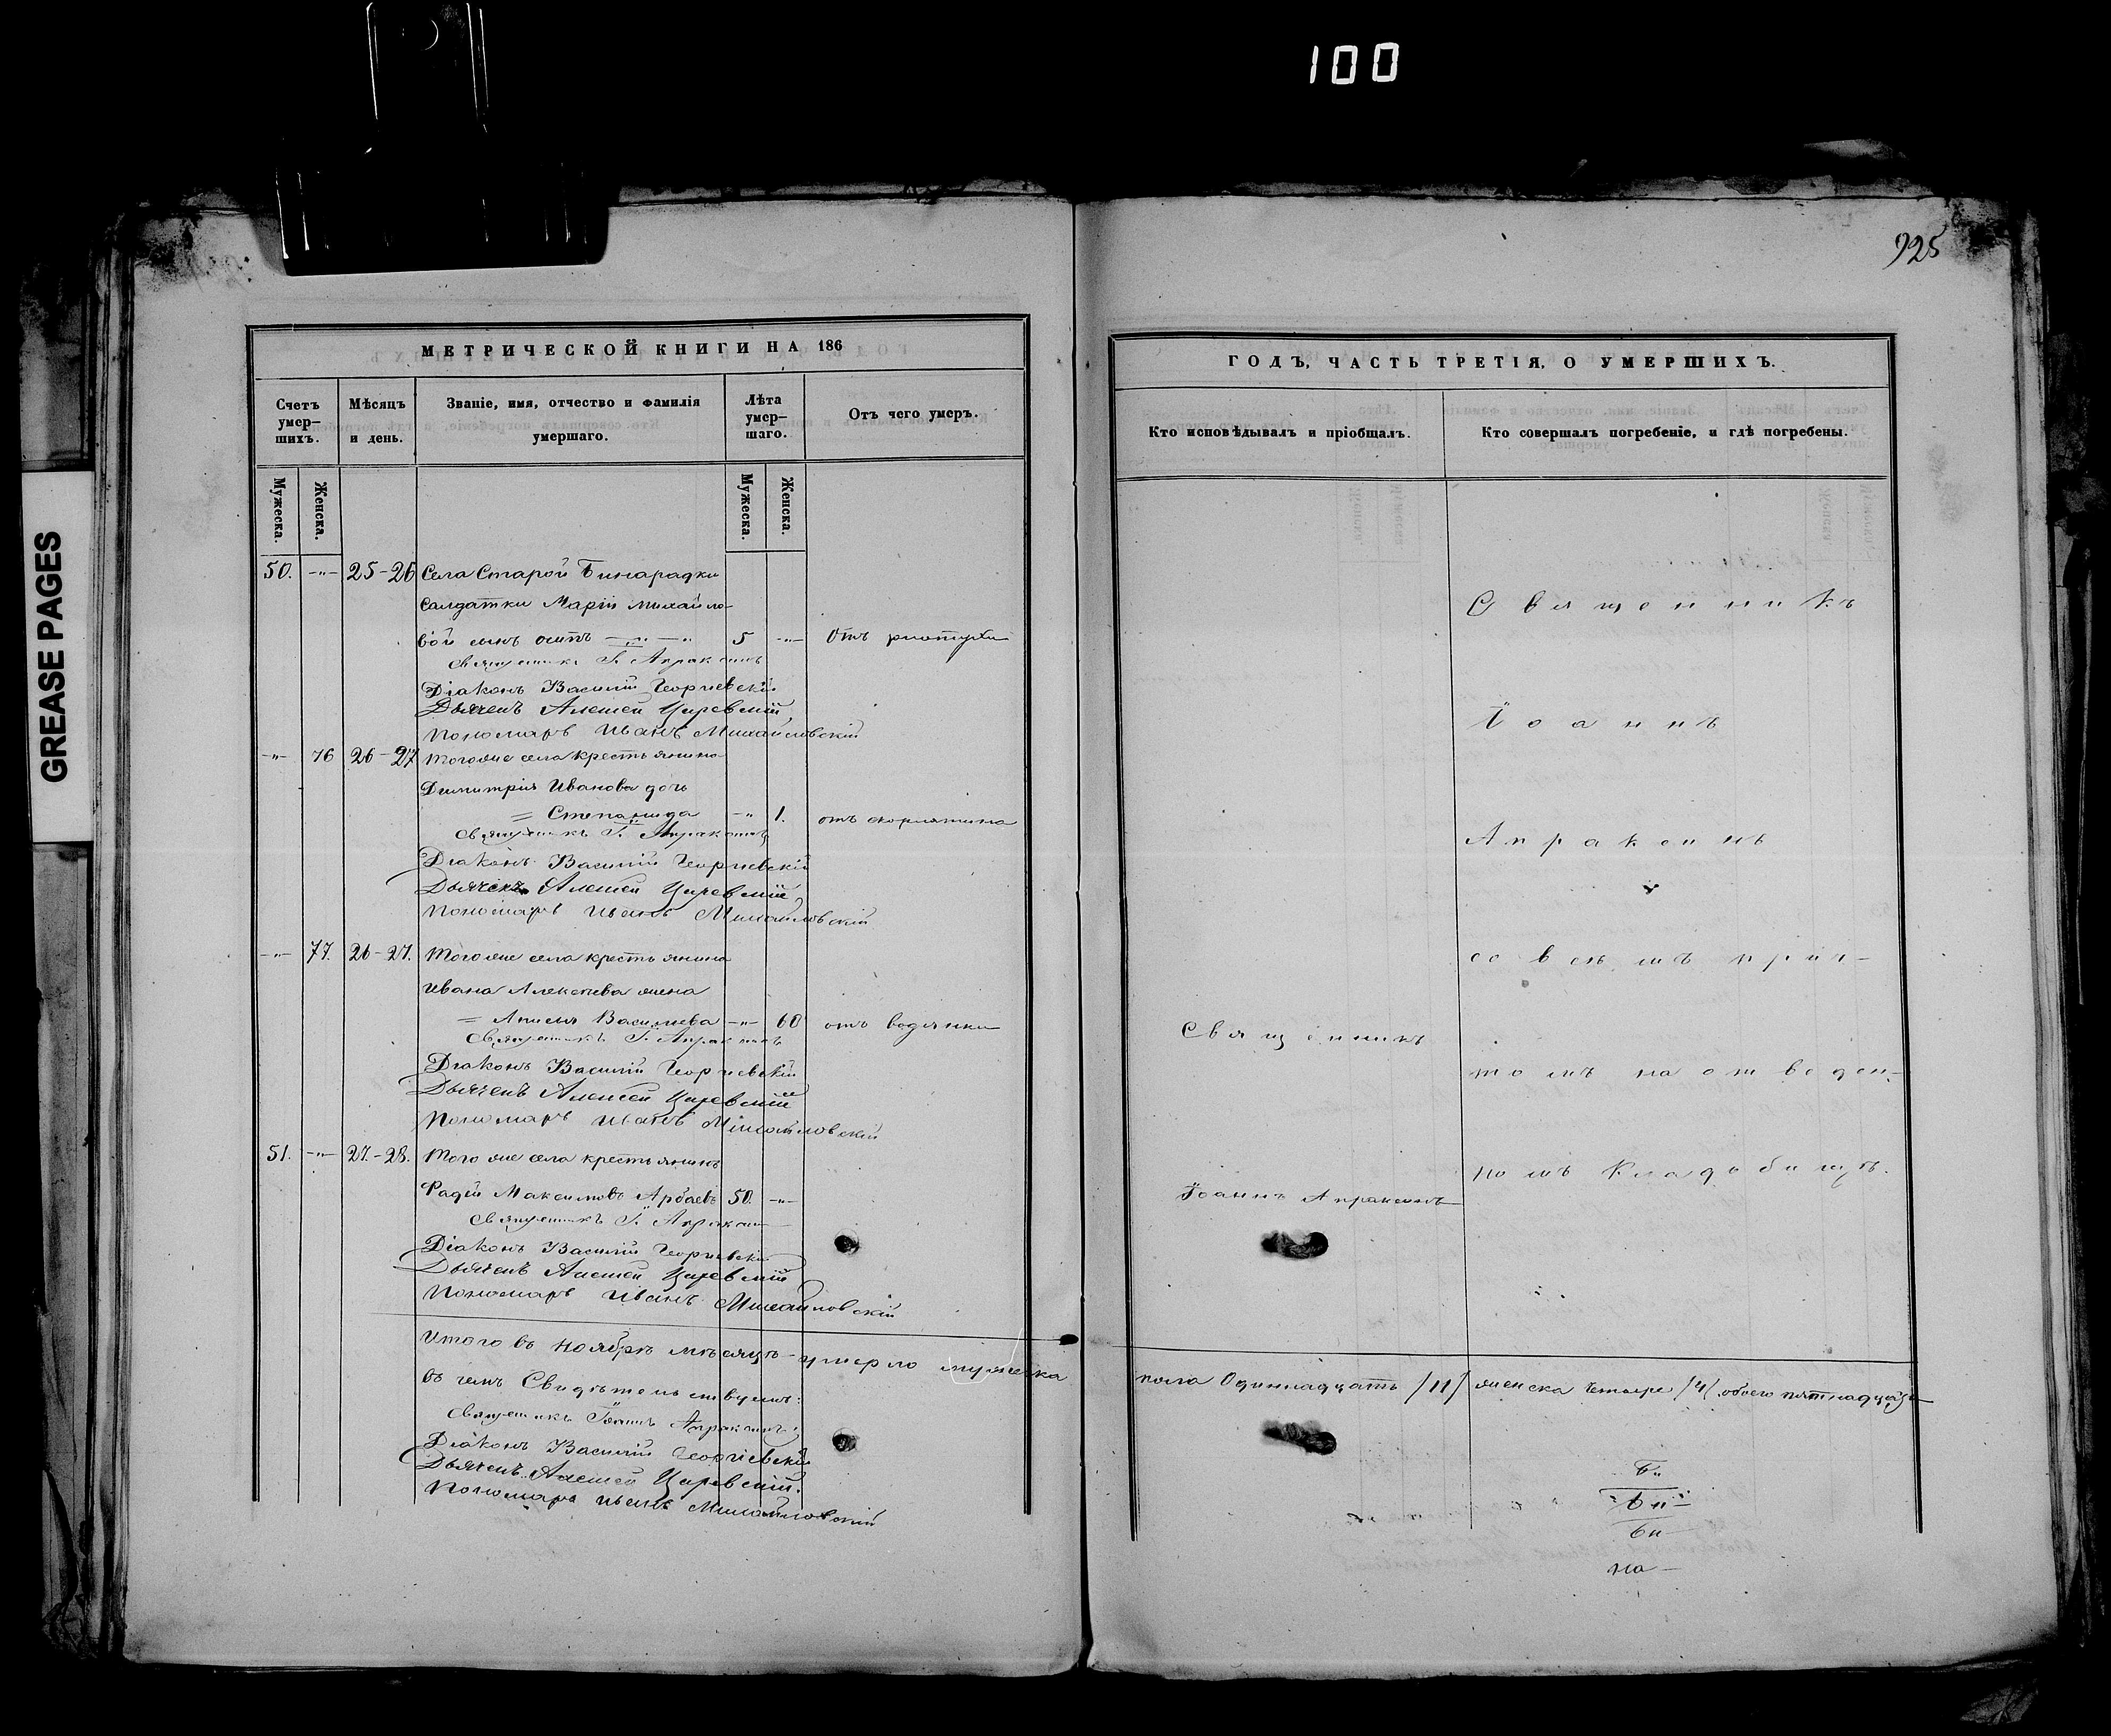 100
GREASE PAGES
925
МЕТРИЧЕСКОЙ КНИГИ НА 186
Счетъ умер-
шихъ.
Мѣсяцъ
и день.
Званіе, имя, отчество и фамилія
умершаго.
Лѣта
умер-
шаго.
Отъ чего умеръ.
Мужеска.
Женска.
Мужеска.
Женска.
50. -"- 25-26 Села Старой Бинарадки
Салдатки Маріи Михайло-
вой сынъ 5 -"- Отъ
Священникъ І. Апраксинъ
Діаконъ Василій Георгіевскій
Дьячекъ Алексей Царевскій
Пономарь Иванъ Михайловскій
-"- 76 26-27 Тогоже села крестьянина
Димитрія Иванова дочь
= Степанида -"- 1. отъ
Священникъ І. Апраксинъ
Діаконъ Василій Георгіевскій
Дьячекъ Алексей Царевскій
Пономарь Иванъ Михайловскій
-"- 77. 26-27. Тогоже села крестьянина
Ивана Алексѣева жена
= Васильева -"- 60 отъ водянки
Священникъ І. Апраксинъ
Діаконъ Василій Георгіевскій
Дьячекъ Алексей Царевскій
Пономарь Иванъ Михайловскій
51. -"- 27.-28. Того же села крестьянинъ
Фадей Максимовъ Арбаевъ 50. -"-
Священникъ І. Апраксинъ
Діаконъ Василій Георгіевскій
Дьячекъ Алексей Царевскій
Пономарь Иванъ Михайловскій
Итого въ Ноябрѣ мѣсяцѣ умерло мужеска
въ чемъ Свидѣтельствуемъ:
Священникъ Іоаннъ Апраксинъ
Діаконъ Василій Георгіевскій
Дьячекъ Алексей Царевскій.
Пономарь Иванъ Михайловскій
ГОДЪ, ЧАСТЬ ТРЕТІЯ, О УМЕРШИХЪ.
Кто исповѣдывалъ и пріобщалъ.
Кто совершалъ погребеніе, и гдѣ погребены.
Священникъ
Іоаннъ
Апраксинъ
со всѣмъ прич-
Священникъ
томъ на отведен-
номъ Кладбищѣ.
Іоаннъ Апраксинъ
пола Одиннадцать /11/ женска Четыре /4/ обоего пятнадцать